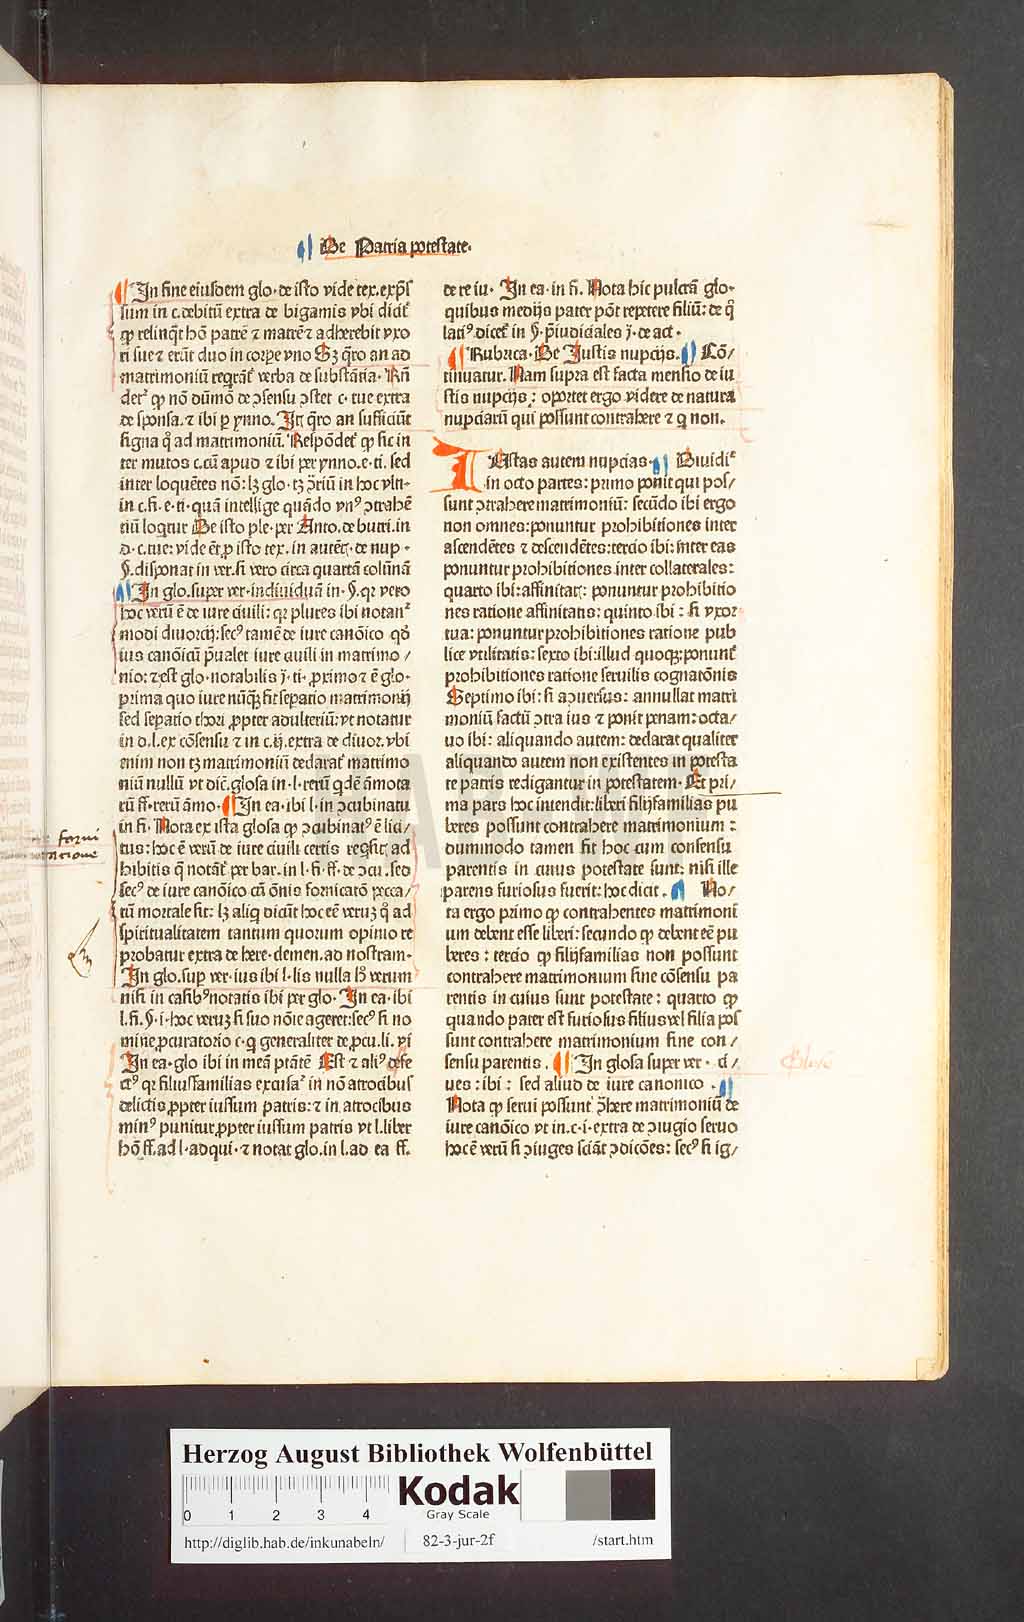 De Patria potestate.
In fine eiusdem glo. de isto vide tex. exp̄s
sum in c. debitū extra de bigamis vbi dicit᷑
ꝙ relinq̄t hō patrē ⁊ matrē ⁊ adherebit vxo
ri sue ⁊ erūt duo in corpe vno Sꝫ q̄ro an ad
matrimoniū reqrāt᷑ verba de substātia. Rñ
det᷑ ꝙ nō dūmō de ↄsensu ↄstet c. tue extra
de sponsa. ⁊ ibi p ynno. Itē q̄ro an sufficiūt
signa q̄ ad matrimoniū. Respōdet᷑ ꝙ sic in
ter mutos c. cū apud ⁊ ibi per ynno. e. ti. sed
inter loquētes nō: lꝫ glo. tꝫ ↄ̄riū in hoc vlti-
in c. fi. e. ti. quā intellige quādo vnꝰ ↄtrahē
tiū loqtur De isto ple. per Anto. de butri. in
d. c. tue: vide ēt p isto tex. in autēt. de nup.
§. disponat in ver. si vero circa quartā colūnā
In glo. super ver. indiuiduā in. §. qꝛ vero
hoc verū ē de iure ciuili: qꝛ plures ibi notant᷑
modi diuorcij: secꝰ tamē de iure canōico qð
ius canōicū p̄ualet iure ciuili in matrimo/
nio: ⁊ est glo. notabilis j. ti. ꝓximo ⁊ ē glo.
prima quo iure nūq̄ꝫ fit sepatio matrimonij
sed sepatio thori ꝓpter adulteriū: vt notatur
in d. l. ex cōsensu ⁊ in c. ij. extra de diuor. vbi
enim non tꝫ matrimoniū declarat᷑ matrimo
niū nullū vt dic̄. glosa in. l. rerū q̄dē āmota
rū ff. rerū āmo. In ea. ibi l. in ↄcubinatu
in fi. Nota ex ista glosa ꝙ ↄcubinatꝰ ē lici/
tus: hoc ē verū de iure ciuili certis reqsit̄ ad
hibitis q̄ notāt᷑ per bar. in l. fi. ff. de ↄcu. sed
secꝰ de iure canōico cū ōnis fornicatō pecca/
tū mortale sit: lꝫ aliq dicūt hoc eē veruꝫ q̄ ad
spiritualitatem tantum quorum opinio re
probatur extra de here. demen. ad nostram.
In glo. sup ver. ius ibi l. lis nulla lꝫ verum
nisi in casibꝰ notatis ibi per glo. In ea. ibi
l. fi. §. i. hoc veruꝫ si suo nōie ageret: secꝰ si no
mine ꝓcuratorio c. q generaliter de ꝓcu. li. vi
In ea. glo ibi in meā ptātē Est ⁊ aliꝰ defe
ctꝰ qꝛ filiusfamilias excusat᷑ in nō atrocibus
delictis ꝓpter iussum patris: ⁊ in atrocibus
minꝰ punitur ꝓpter iussum patris vt l. liber
hō ff. ad l. adqui. ⁊ notat glo. in l. ad ea ff.
de re iu. In ea. in fi. Nota hic pulcrā glo.
quibus medijs pater pōt repetere filiū: de q̄
latiꝰ dicet᷑ in §. p̄iudiciales j. de act.
Rubrica. De Justis nupcijs. Cō/
tinuatur. Nam supra est facta mensio de iu
stis nupcijs: oportet ergo videre de natura
nupciarū qui possunt contrahere ⁊ q non.
IUstas autem nupcias. Diuidit᷑
in octo partes: primo ponit qui pos/
sunt ↄtrahere matrimoniū: secūdo ibi ergo
non omnes: ponuntur prohibitiones inter
ascendētes ⁊ descendētes: tercio ibi: inter eas
ponuntur prohibitiones inter collaterales:
quarto ibi: affinitat̄: ponuntur prohibitio
nes ratione affinitatis: quinto ibi: si vxor
tua: ponuntur prohibitiones ratione pub
lice vtilitatis: sexto ibi: illud quoqꝫ: ponunt᷑
prohibitiones ratione seruilis cognatōnis
Septimo ibi: si aduersus: annullat matri
moniū factū ↄtra ius ⁊ ponit penam: octa/
uo ibi: aliquando autem: declarat qualiter
aliquando autem non existentes in potesta
te patris redigantur in potestatem. Et pri/
ma pars hoc intendit: liberi filijfamilias pu
beres possunt contrahere matrimonium:
dummodo tamen fit hoc cum consensu
parentis in cuius potestate sunt: nisi ille
parens furiosus fuerit: hoc dicit. No/
ta ergo primo ꝙ contrahentes matrimoni
um debent esse liberi: secundo ꝙ debent eē pu
beres: tercio ꝙ filijfamilias non possunt
contrahere matrimonium sine cōsensu pa
rentis in cuius sunt potestate: quarto ꝙ
quando pater est furiosus filius vel filia pos
sunt contrahere matrimonium sine con/
sensu parentis. In glosa super ver. ci/
ues: ibi: sed aliud de iure canonico.
Nota ꝙ serui possunt ↄ̄here matrimoniū de
iure canōico vt in. c. i. extra de ↄiugio seruo
hoc ē verū si ↄiuges sciāt ↄdicōes: secꝰ si ig/
Herzog August Bibliothek Wolfenbüttel
0 1 2 3 4
Kodak
Gray Scale
http://diglib.hab.de/inkunabeln/ 82-3-jur-2f /start.htm